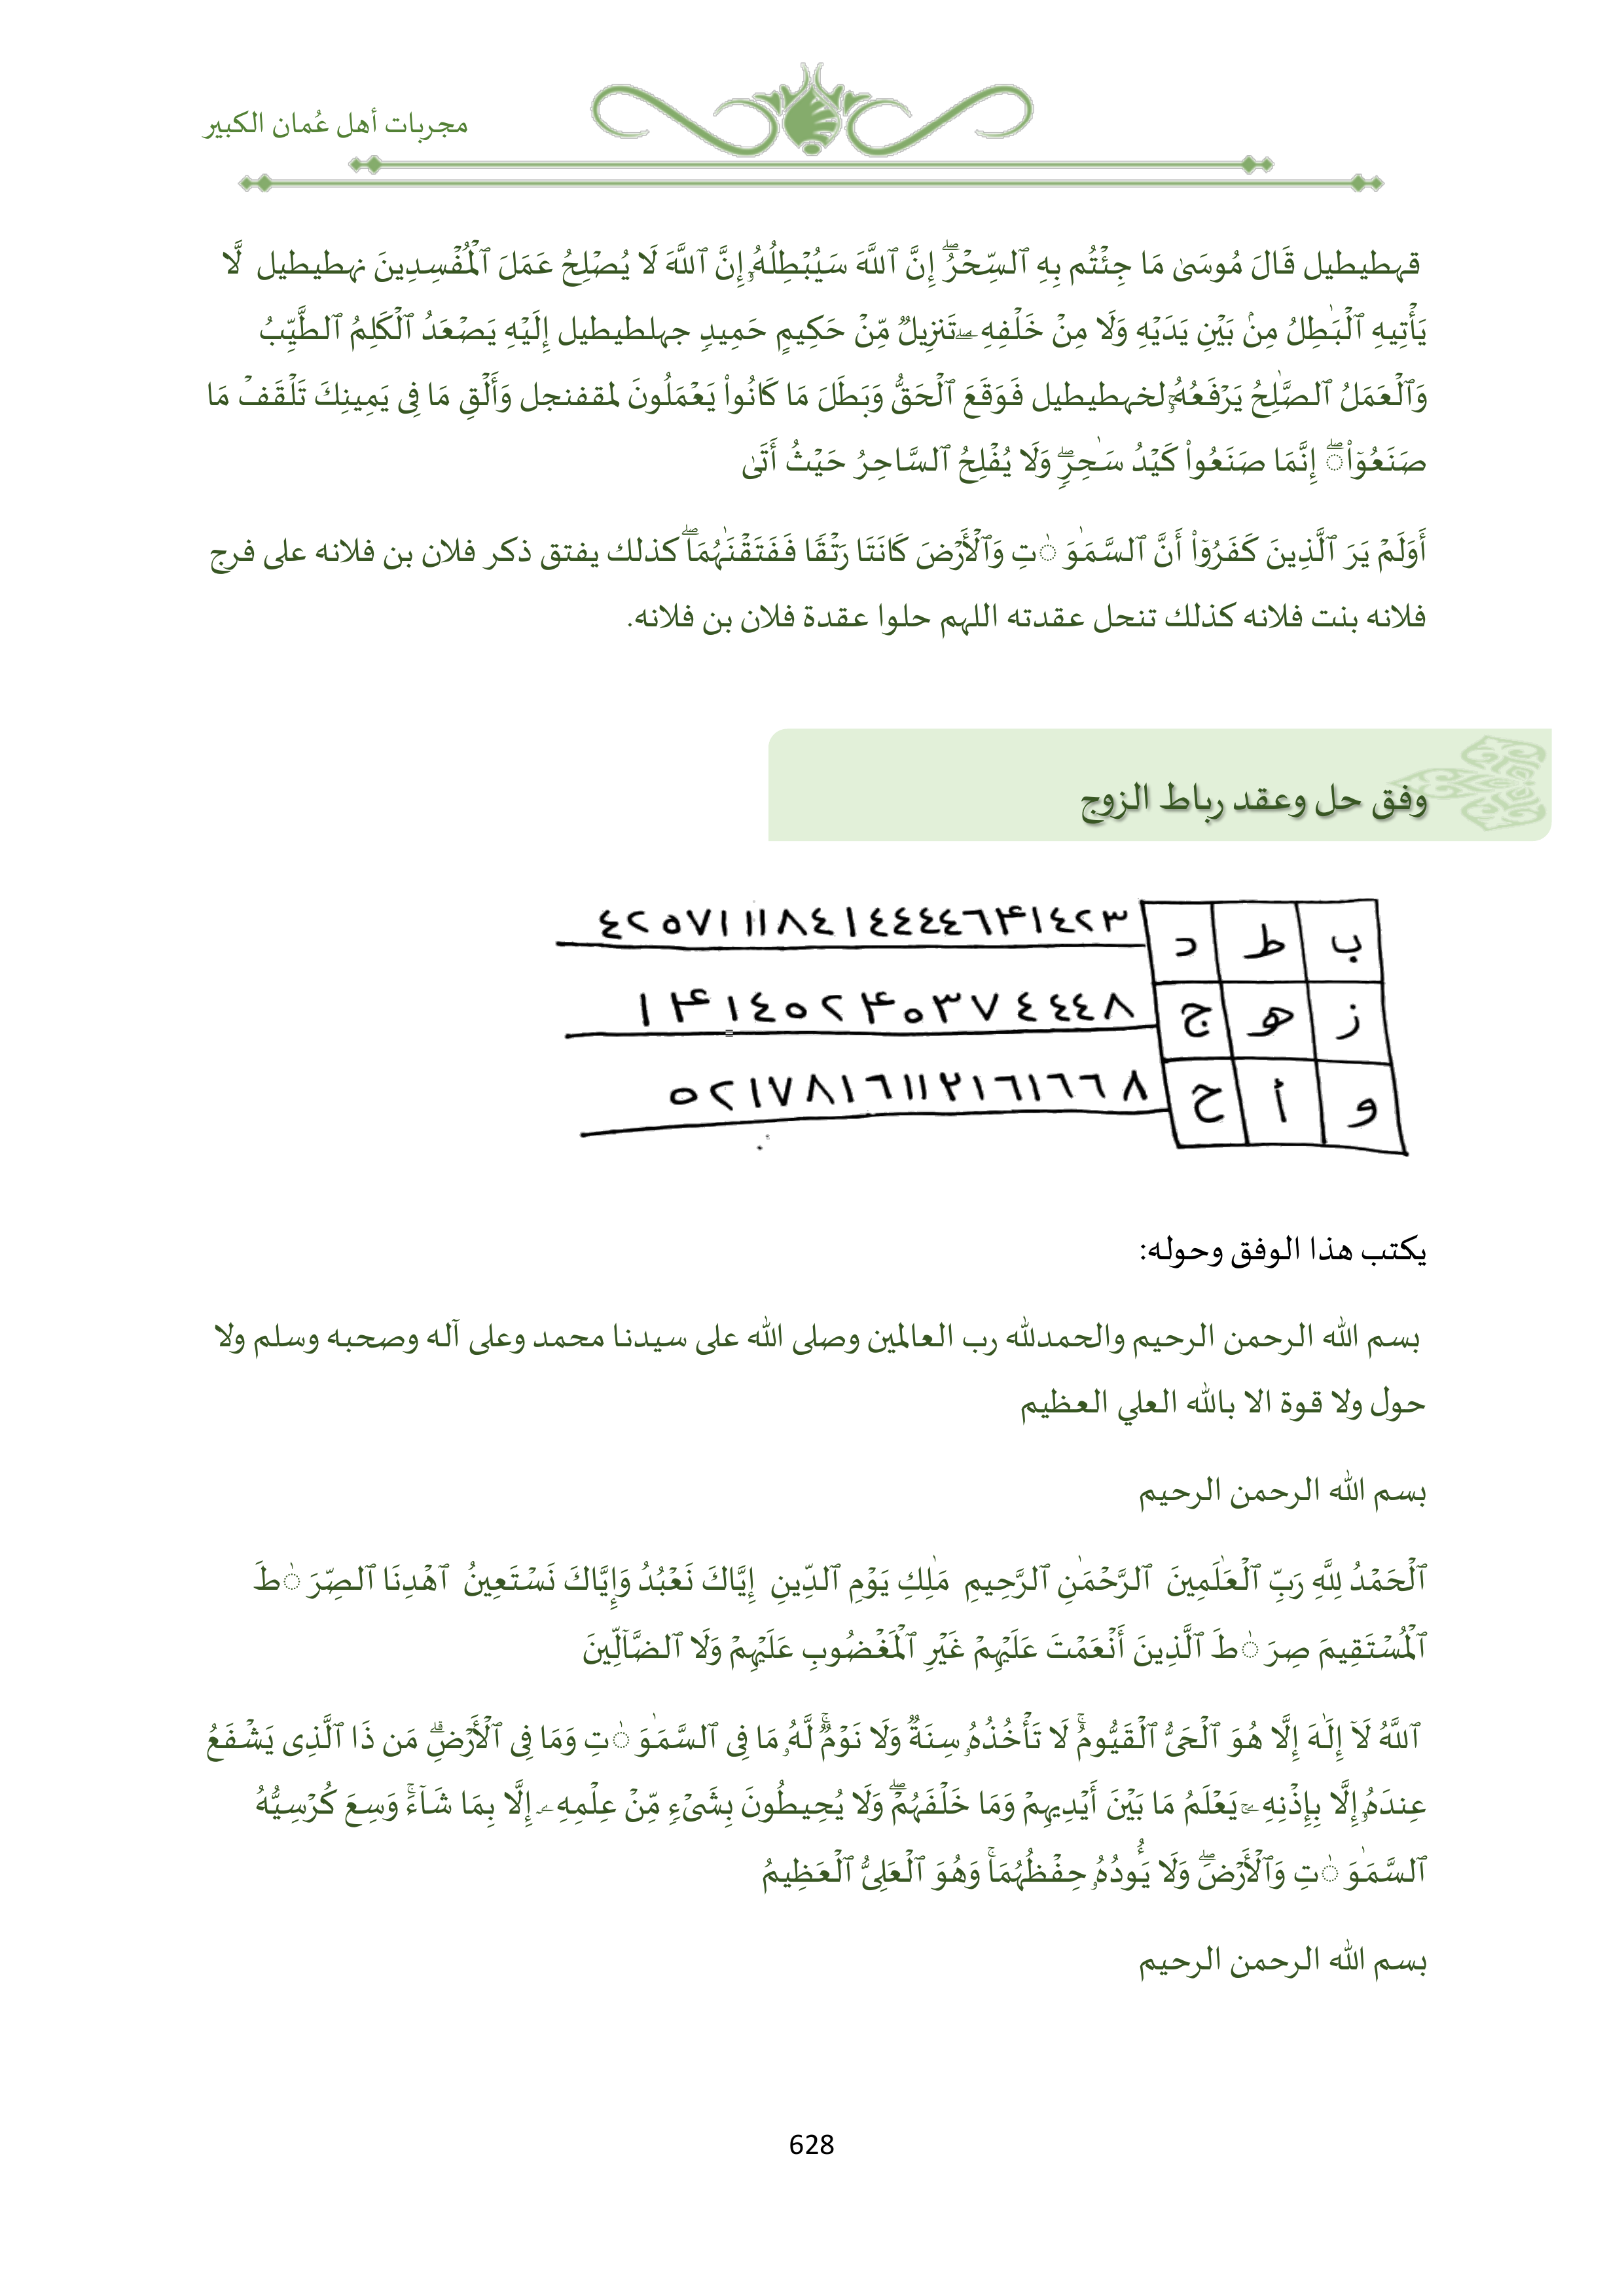 مجربات أهل عُمان الكبير
قهطيطيل قَالَ مُوسَىٰ مَا جِئۡتُم بِهِ ٱلسِّحۡرُۖ إِنَّ ٱللَّهَ سَيُبۡطِلُهُۥٓ إِنَّ ٱللَّهَ لَا يُصۡلِحُ عَمَلَ ٱلۡمُفۡسِدِينَ نهطيطيل لَّا
يَأۡتِيهِ ٱلۡبَٰطِلُ مِنۢ بَيۡنِ يَدَيۡهِ وَلَا مِنۡ خَلۡفِهِۦۖ تَنزِيلٞ مِّنۡ حَكِيمٍ حَمِيدٖ جهلطيطيل إِلَيۡهِ يَصۡعَدُ ٱلۡكَلِمُ ٱلطَّيِّبُ
وَٱلۡعَمَلُ ٱلصَّٰلِحُ يَرۡفَعُهُۥۚ لخهطيطيل فَوَقَعَ ٱلۡحَقُّ وَبَطَلَ مَا كَانُواْ يَعۡمَلُونَ لمقفنجل وَأَلۡقِ مَا فِى يَمِينِكَ تَلۡقَفۡ مَا
صَنَعُوٓاْۖ إِنَّمَا صَنَعُواْ كَيۡدُ سَٰحِرٖۖ وَلَا يُفۡلِحُ ٱلسَّاحِرُ حَيۡثُ أَتَىٰ
أَوَلَمۡ يَرَ ٱلَّذِينَ كَفَرُوٓاْ أَنَّ ٱلسَّمَٰوَٰتِ وَٱلۡأَرۡضَ كَانَتَا رَتۡقٗا فَفَتَقۡنَٰهُمَاۖ كذلك يفتق ذكر فلان بن فلانه على فرج
فلانه بنت فلانه كذلك تنحل عقدته اللهم حلوا عقدة فلان بن فلانه.
وفق حل وعقد رباط الزوج
ب ط د
ز هـ ج
و أ ح
يكتب هذا الوفق وحوله:
بسم الله الرحمن الرحيم والحمدلله رب العالمين وصلى الله على سيدنا محمد وعلى آله وصحبه وسلم ولا
حول ولا قوة الا بالله العلي العظيم
بسم الله الرحمن الرحيم
ٱلۡحَمۡدُ لِلَّهِ رَبِّ ٱلۡعَٰلَمِينَ ٱلرَّحۡمَٰنِ ٱلرَّحِيمِ مَٰلِكِ يَوۡمِ ٱلدِّينِ إِيَّاكَ نَعۡبُدُ وَإِيَّاكَ نَسۡتَعِينُ ٱهۡدِنَا ٱلصِّرَٰطَ
ٱلۡمُسۡتَقِيمَ صِرَٰطَ ٱلَّذِينَ أَنۡعَمۡتَ عَلَيۡهِمۡ غَيۡرِ ٱلۡمَغۡضُوبِ عَلَيۡهِمۡ وَلَا ٱلضَّآلِّينَ
ٱللَّهُ لَآ إِلَٰهَ إِلَّا هُوَ ٱلۡحَىُّ ٱلۡقَيُّومُۚ لَا تَأۡخُذُهُۥ سِنَةٞ وَلَا نَوۡمٞۚ لَّهُۥ مَا فِى ٱلسَّمَٰوَٰتِ وَمَا فِى ٱلۡأَرۡضِۗ مَن ذَا ٱلَّذِى يَشۡفَعُ
عِندَهُۥٓ إِلَّا بِإِذۡنِهِۦۚ يَعۡلَمُ مَا بَيۡنَ أَيۡدِيهِمۡ وَمَا خَلۡفَهُمۡۖ وَلَا يُحِيطُونَ بِشَىۡءٖ مِّنۡ عِلۡمِهِۦٓ إِلَّا بِمَا شَآءَۚ وَسِعَ كُرۡسِيُّهُ
ٱلسَّمَٰوَٰتِ وَٱلۡأَرۡضَۖ وَلَا يَـُٔودُهُۥ حِفۡظُهُمَاۚ وَهُوَ ٱلۡعَلِىُّ ٱلۡعَظِيمُ
بسم الله الرحمن الرحيم
628